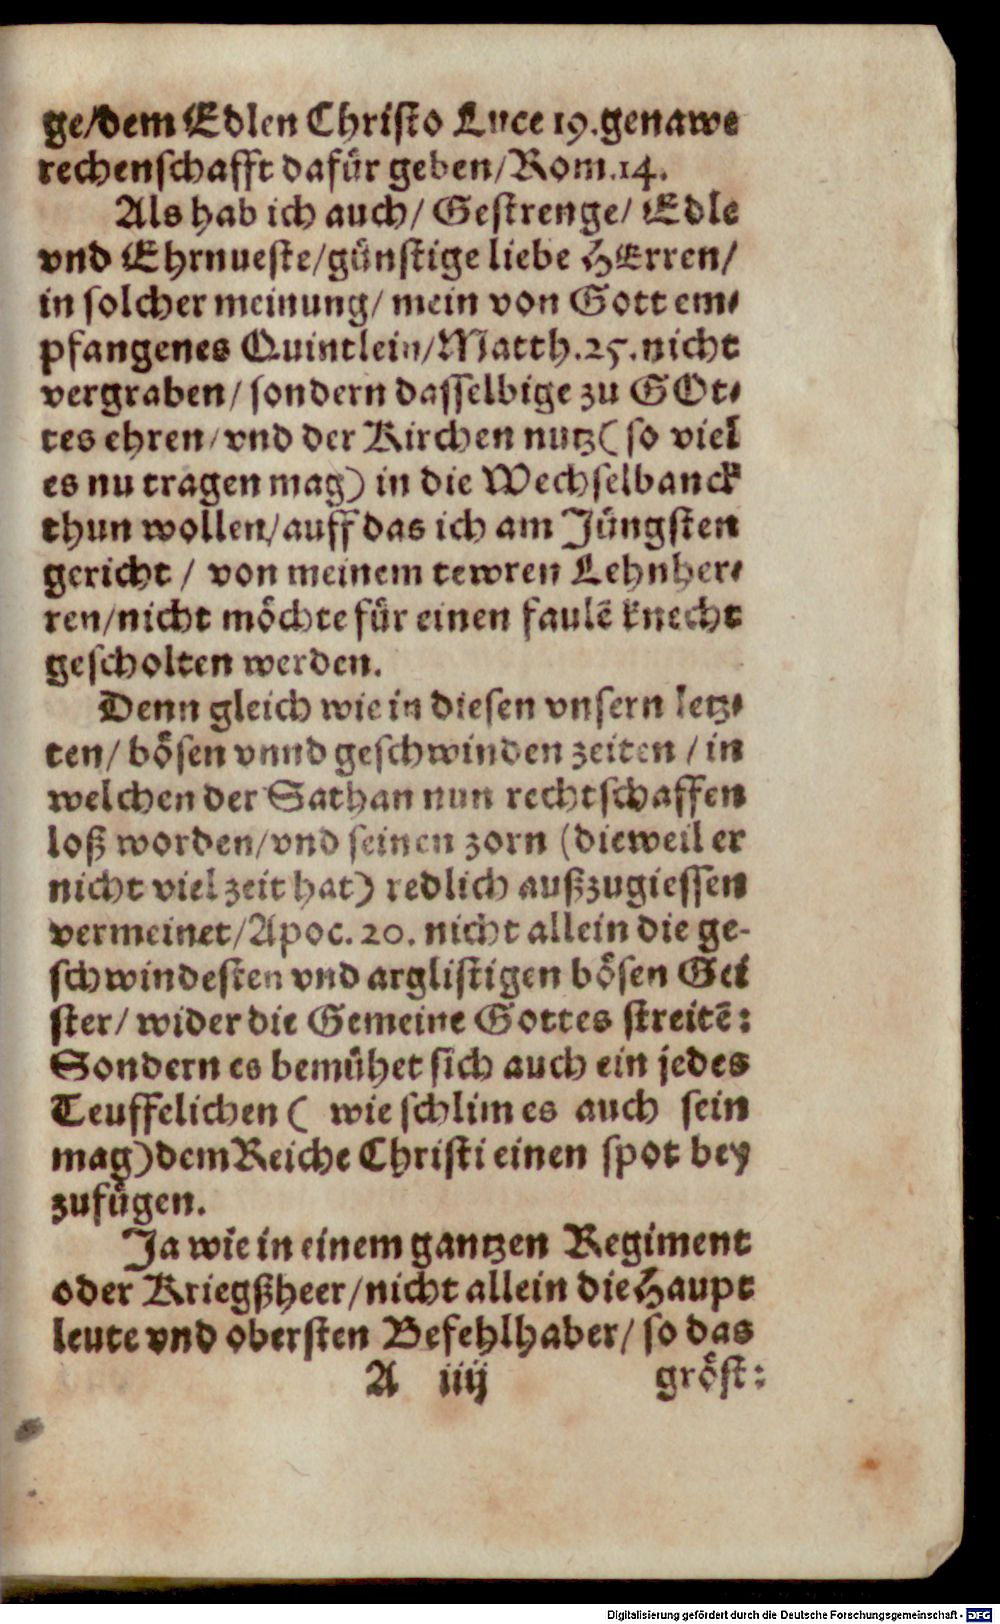 ge/dem Edlen Christo Luce 19. genawe
rechenschafft dafür geben/Rom.14.
Als hab ich auch/ Gestrenge/ Edle
vnd Ehrnueste/günstige liebe HErren/
in solcher meinung/ mein von Gott em-
pfangenes Quintlein/Matth.25.nicht
vergraben/ sondern dasselbige zu GOt-
tes ehren/vnd der Kirchen nutz (so viel
es nu tragen mag) in die Wechselbanck
thun wollen/auff das ich am Jüngsten
gericht / von meinem tewren Lehnher-
ren/nicht möchte für einen faulē knecht
gescholten werden.
Denn gleich wie in diesen vnsern letz-
ten/ bösen vnnd geschwinden zeiten / in
welchen der Sathan nun rechtschaffen
loß worden/vnd seinen zorn (dieweil er
nicht viel zeit hat) redlich außzugiessen
vermeinet/Apoc. 20. nicht allein die ge-
schwindesten vnd arglistigen bösen Gei
ster/ wider die Gemeine Gottes streitē:
Sondern es bemühet sich auch ein jedes
Teuffelichen ( wie schlim es auch sein
mag) dem Reiche Christi einen spot bey
zufügen.
Ja wie in einem gantzen Regiment
oder Kriegßheer/nicht allein die Haupt
leute vnd obersten Befehlhaber/ so das
A iiij gröst:
Digitalisierung gefördert durch die Deutsche Forschungsgemeinschaft - DFG